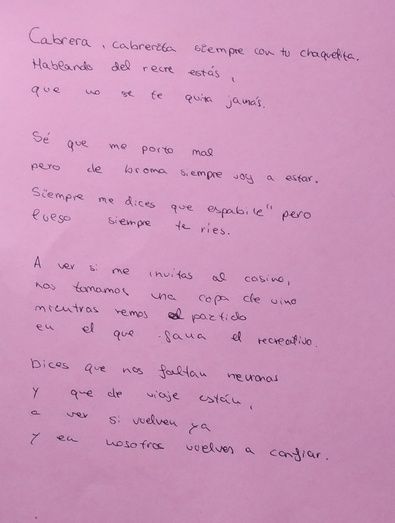 Cabrera, cabrerita siempre con tu chaquetita.
Hablando del recre estás,
que no se te quita jamás.
Sé que me porto mal
pero de broma siempre voy a estar.
Siempre me dices que espabile" pero
luego siempre te ries.
A ver si me invitas al casino,
nos tomamos una copa de vino
mientras vemos el partido
en el que gana el recreativo.
Dices que nos faltan neuronas
y que de viaje están,
a ver si vuelven ya
y en nosotros vuelves a confiar.